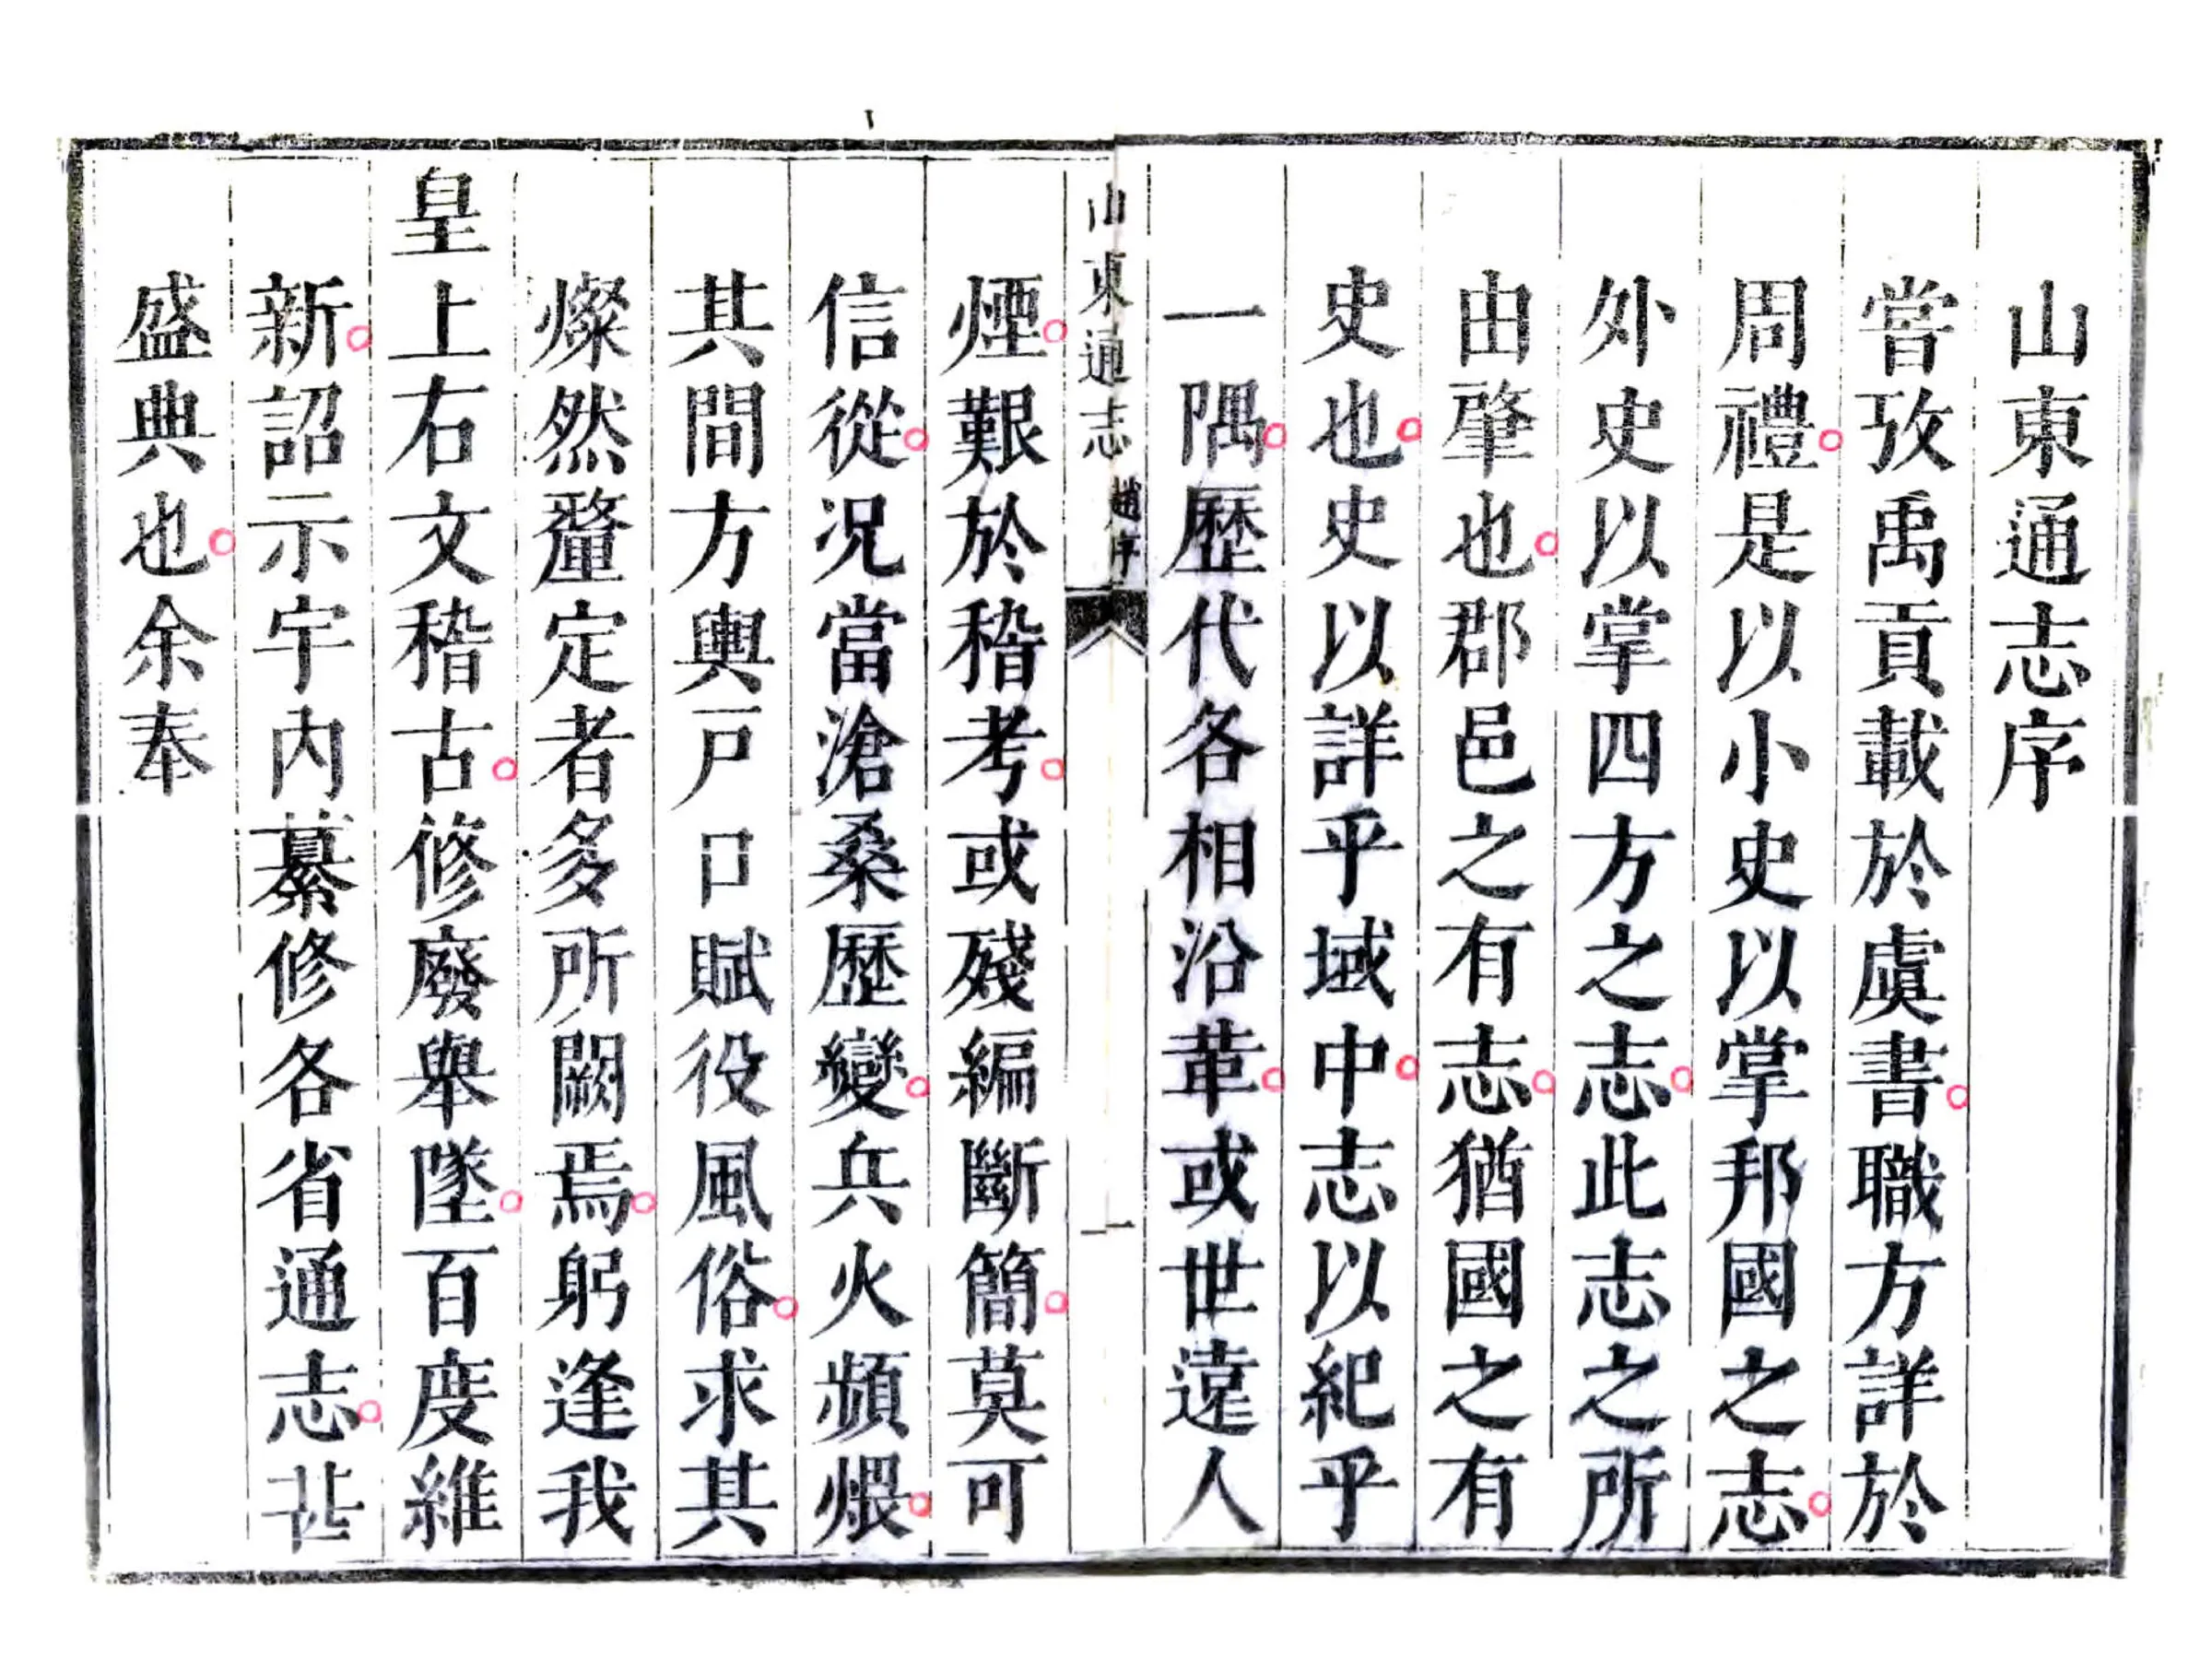 山東通志序
嘗攷禹貢載於虞書。職方詳於
周禮。是以小史以掌邦國之志。
外史以掌四方之志。此志之所
由肇也。郡邑之有志。猶國之有
史也。史以詳乎域中。志以紀乎
一隅。歷代各相沿革。或世遠人
山東通志 趙序 一
煙。艱於稽考。或殘編斷簡。莫可
信從。況當滄桑歷變。兵火頻煨。
其間方輿戸口賦役風俗。求其
燦然釐定者多所闕焉。躬逢我
皇上右文稽古。修廢舉墜。百度維
新。詔示宇內纂修各省通志。甚
盛典也。余奉